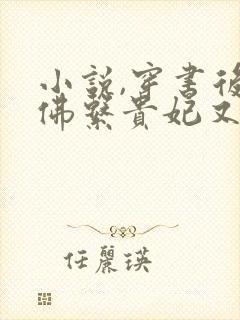 小說,穿書後
佛繫貴妃又
任麗瑛